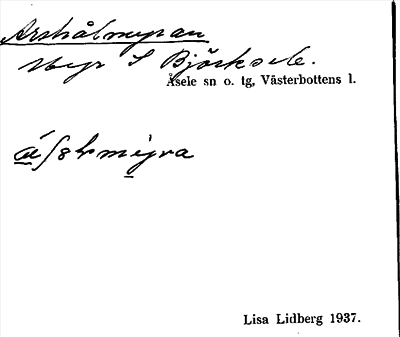 Arshålmyran
Myr S Björksele.
Åsele sn o. tg, Västerbottens l.
Lisa Lidberg 1937.